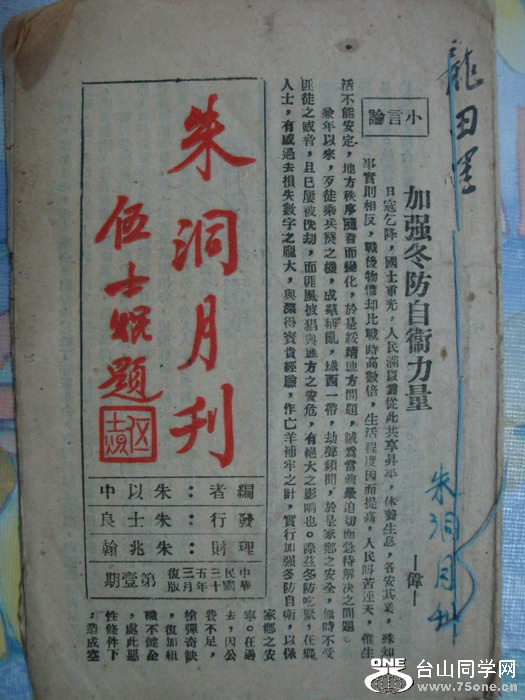 龍田
朱洞月刊
小言論
加强冬防自衛力量
—偉—
日寇乞降，國土重光，人民滿以為從此共享昇平，休養生息，各安其業，殊知
事實則相反，戰後物價却比戰時高數倍，生活程度因而提高，人民叫苦連天，生
活不能安定，地方秩序隨着而變化，於是綏靖地方問題，誠為當前最迫切而急待解决之問題。
年以來，歹徒乘兵燹之機，成羣稱亂，城西一帶，劫聲頻聞，於是家鄉之安全，無時不受
匪徒之威脅，且已屢被洗劫，而匪風披猖與地方之安危，有絕大之影响也。際茲冬防吃緊，在鄉
人士，有感過去損失數字之龐大，與深得寶貴經驗，作亡羊補牢之計，實行加强冬防自衛，以保
朱洞月刊
伍士焜題
編者：朱以中
發行：朱士良
理財：朱兆翰
中華民國三十五年三月復版
第壹期
家鄉之安
寧。在過
去，因公
費不足，
槍彈奇缺
，復加組
織不健全
，處此惡
性條件下
，造成
ONE
台山同学网
www.75one.cn